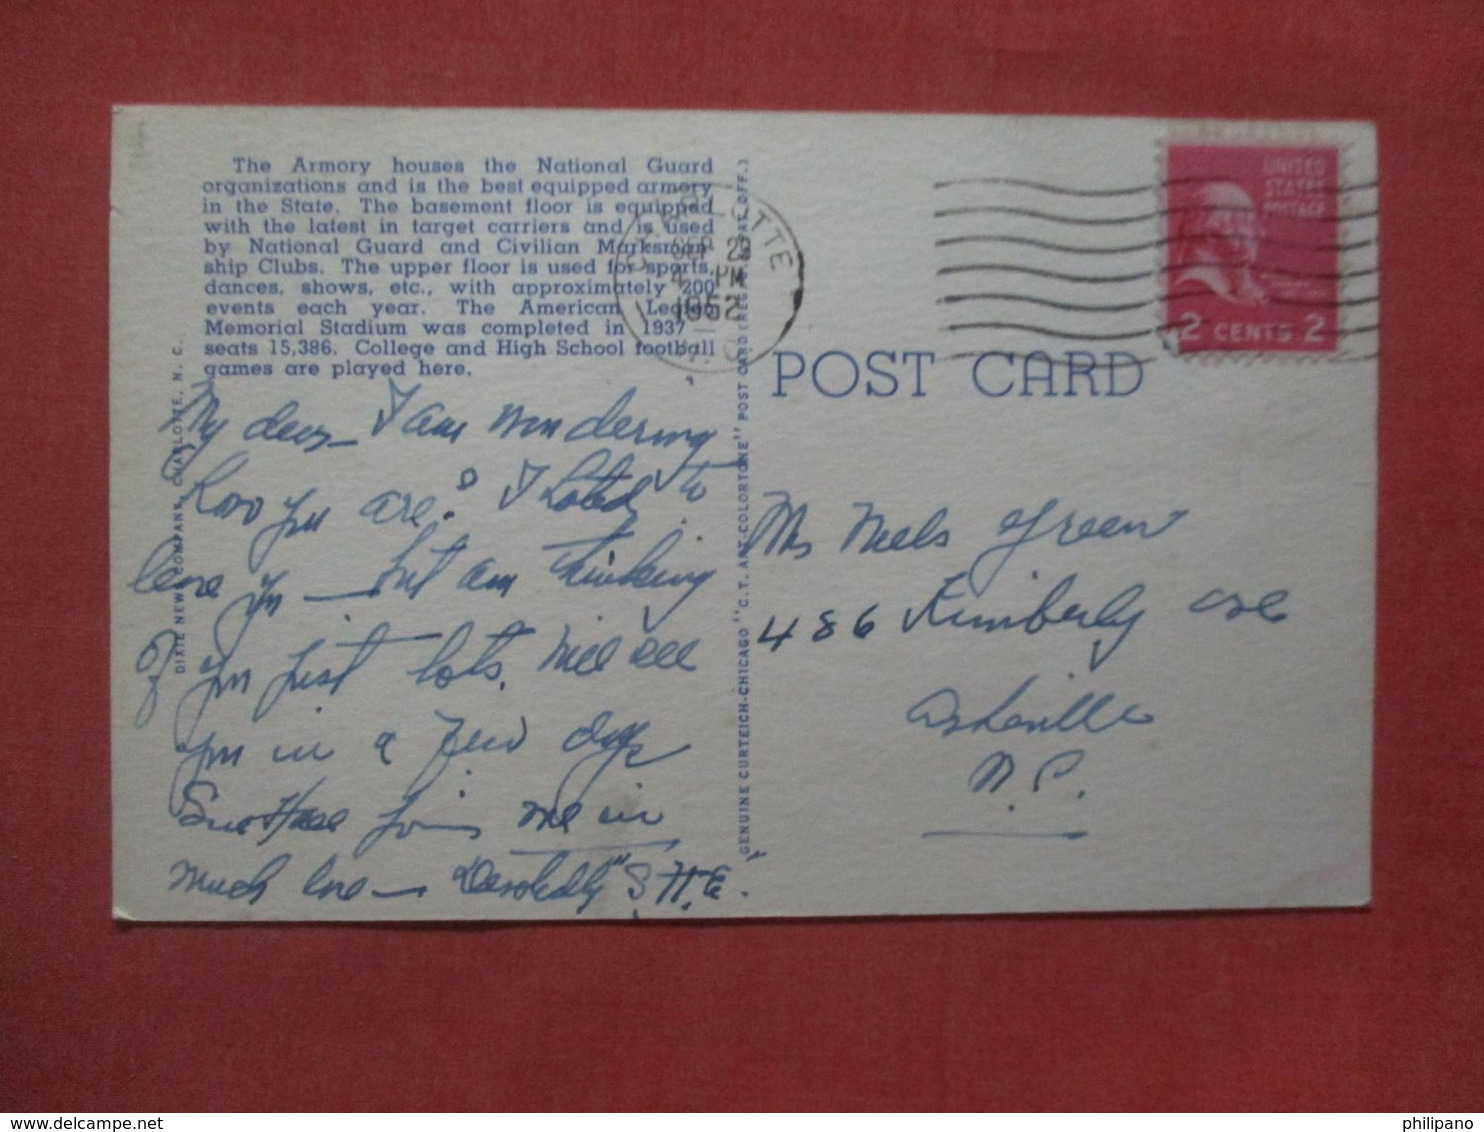 The Armory houses the National Guard
organizations and is the best equipped armory
in the State. The basement floor is equipped
with the latest in target carriers and is used
by National Guard and Civilian Marksman-
ship Clubs. The upper floor is used for sports,
dances, shows, etc., with approximately 200
events each year. The American Legion
Memorial Stadium was completed in 1937 —
seats 15,386. College and High School football
games are played here.
DIXIE NEWS COMPANY, CHARLOTTE, N. C.
My dear — I am wondering
how you are? I hated to
leave you — but am thinking
of you just lots. Will see
you in a few days
joins me in
much love — Devotedly "S.H.E."
GENUINE CURTEICH-CHICAGO "C. T. ART-COLORTONE" POST CARD (REG. U. S. PAT. OFF.)
CHARLOTTE
SEP 29
4 PM
1952
N.C.
UNITED
STATES
POSTAGE
2 CENTS 2
POST CARD
Mrs Neels Green
486 Kimberly Ave
Asheville
N.C.
philipano